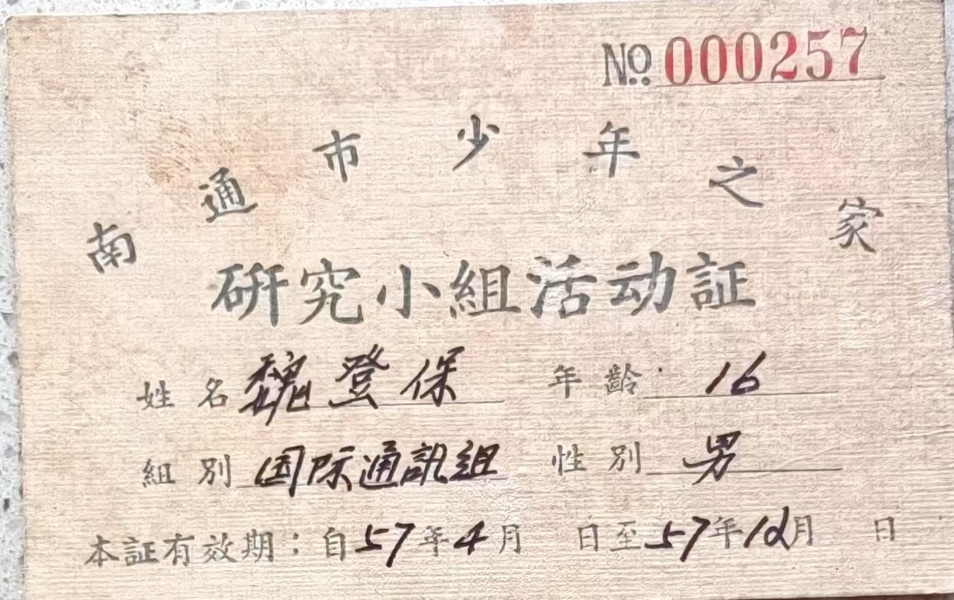 No 000257
南通市少年之家
研究小組活动証
姓名 魏登保 年齡 16
組別 国际通訊組 性別 男
本証有效期：自57年4月 日至57年12月 日